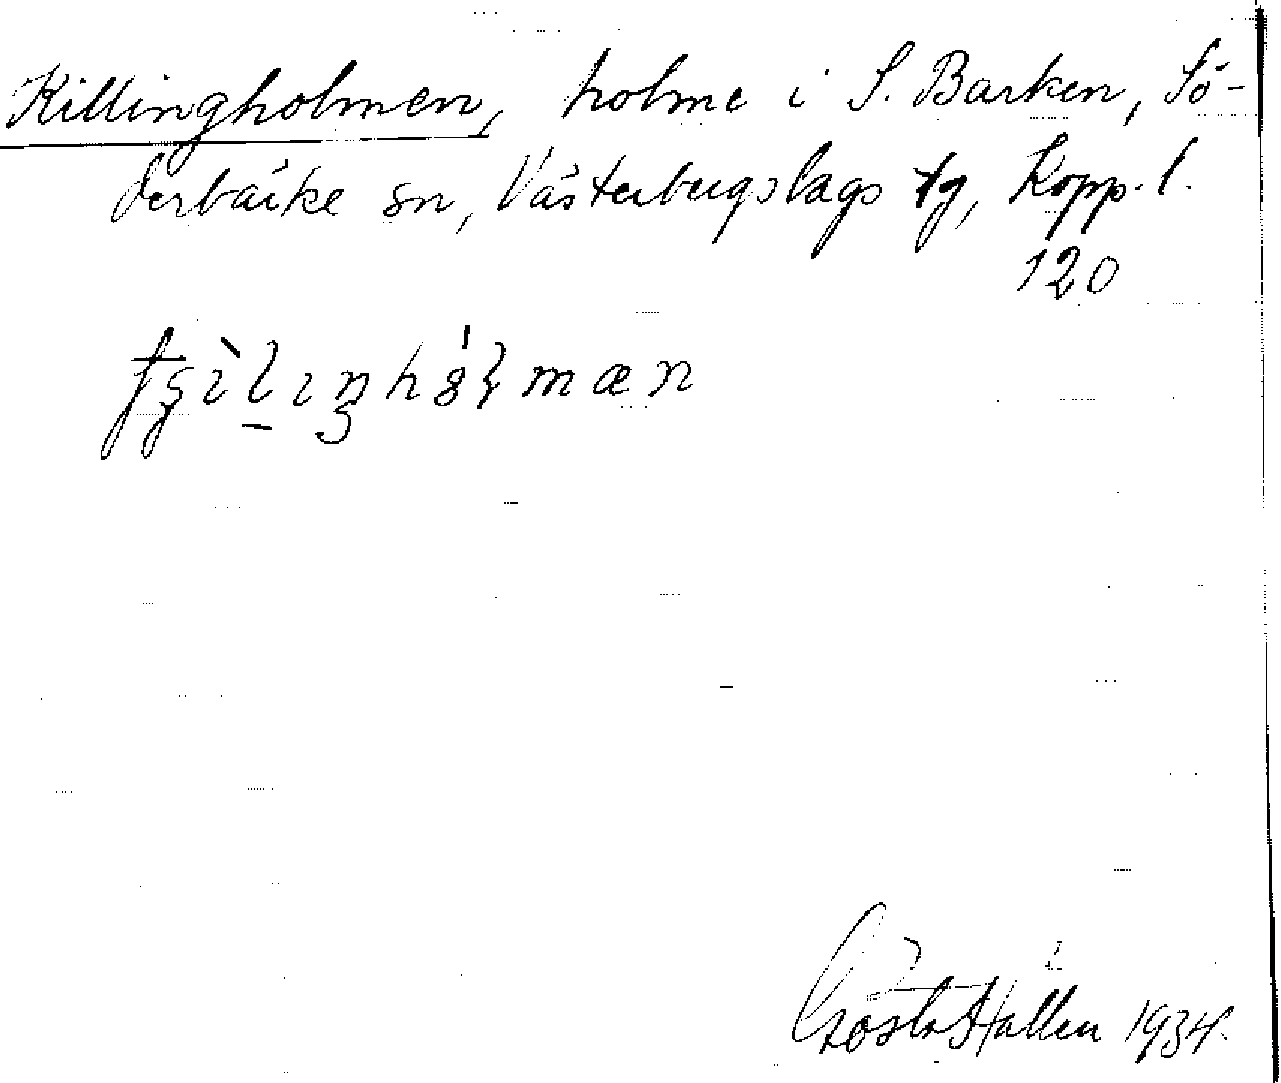 Killingholmen, holme i S. Barken, Sö-
derbärke sn, Västerbergslags tg, Kopp. l.
120
Gösta Hallen 1934.